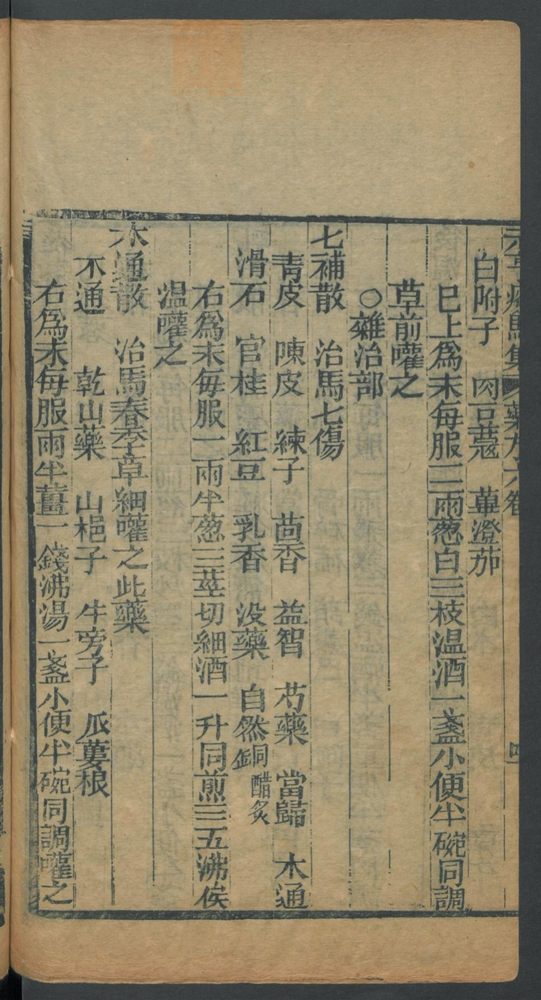 元亨療馬集 藥方六卷
白附子 肉荳蔲 蓽澄茄
巳上爲末每服二兩葱白三枝温酒一盞小便半碗同調
草前嚾之
○雜治部
七補散 治馬七傷
青皮 陳皮 練子 茴香 益智 芍藥 當歸 木通
滑石 官桂 紅豆 乳香 没藥 自然銅醋炙
右爲末每服一兩半葱三莖切細酒一升同煎三五沸俟
温嚾之
木通散 治馬春季草細嚾之此藥
木通 乾山藥 山梔子 牛旁子 瓜蔞根
右爲末每服兩半薑一錢沸湯一盞小便半碗同調嚾之